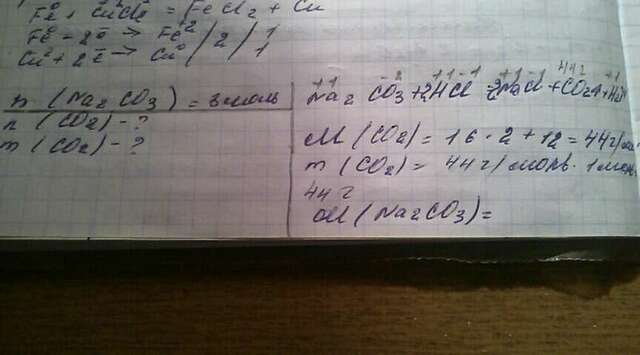 Fe + CuCl2 = FeCl2 + Cu
Fe⁰ - 2ē → Fe⁺² | 2 | 1
Cu⁺² + 2ē → Cu⁰ | 2 | 1
n (Na2CO3) = 3 моль
n (CO2) - ?
m (CO2) - ?
44 г
Na2CO3 + 2HCl = 2NaCl + CO2↑ +
M (CO2) = 16 · 2 + 12 = 44 г/
m (CO2) = 44 г/моль · 1 моль
44 г
M (Na2CO3) =